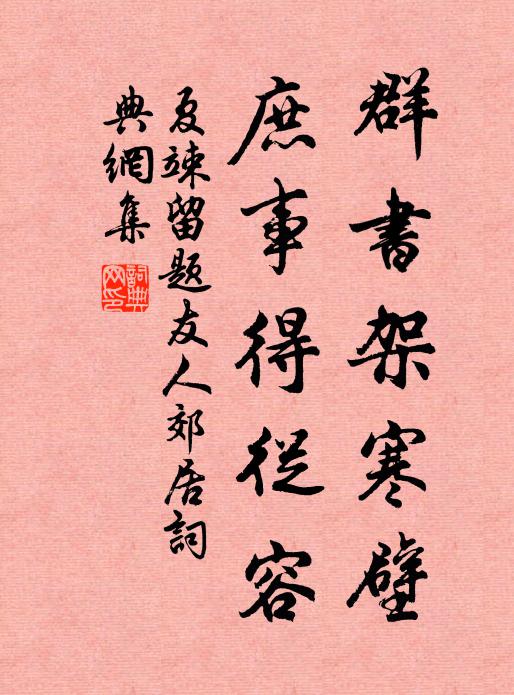 群書架寒壁
庶事得從容
夏竦留題友人郊居詞
典網集
詞典網印